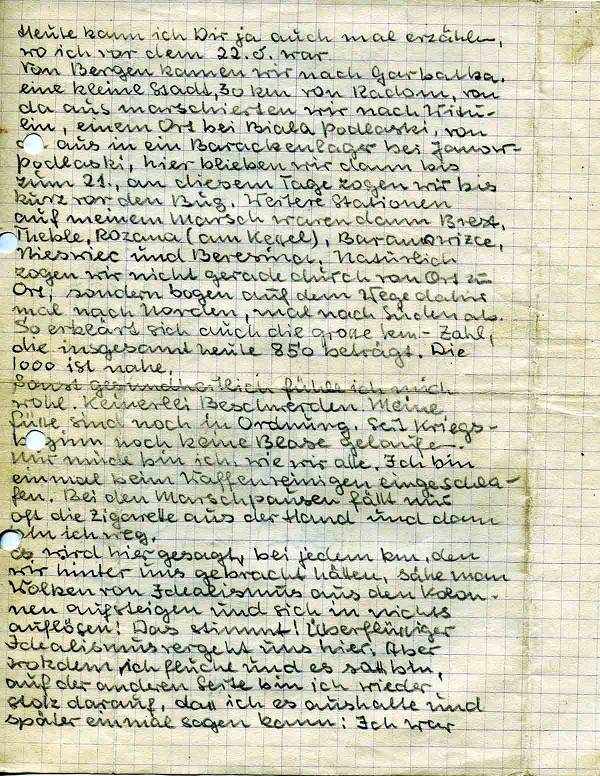 Heute kann ich Dir ja auch mal erzählen,
wo ich vor dem 22.6. war
Von Bergen kamen wir nach Garbatka.
eine kleine Stadt, 30 km von Radom, von
da aus marschierten wir nach Witu-
lin, einem Ort bei Biala Podlaski, von
aus in ein Barackenlager bei Janow-
podlaski, hier blieben wir dann bis
zum 21., an diesem Tage zogen wir bis
kurz vor den Bug. Weitere Stationen
auf meinem Marsch waren dann Brest,
Rozana (am Kessel), Baranowizce,
Nieswiec und Beresino. Natürlich
zogen wir nicht gerade durch von Ort zu
Ort, sondern bogen auf dem Wege dahin
mal nach Norden, mal nach Süden ab.
So erklärt sich auch die grosse km-Zahl,
die insgesamt heute 850 beträgt. Die
1000 ist nahe.
Sonst gesundheitlich fühle ich mich
wohl. Keinerlei Beschwerden. Meine
Füße sind noch in Ordnung. Seit Kriegs-
beginn noch keine Blase gelaufen.
Nur müde bin ich, wie wir alle. Ich bin
einmal beim Waffenreinigen eingeschla-
fen. Bei den Marschpausen fällt mir
oft die Zigarette aus der Hand und dann
bin ich weg.
Es wird hier gesagt, bei jedem km, den
wir hinter uns gebracht hätten, sähe man
Wolken von Idealismus aus den Kolon-
nen aufsteigen und sich in nichts
auflösen! Das stimmt! Überflüssiger
Idealismus vergeht uns hier. Aber
trotzdem ich fluche und es satt bin,
auf der anderen Seite bin ich wieder
stolz darauf, dass ich es aushalte und
später einmal sagen kann: Ich war